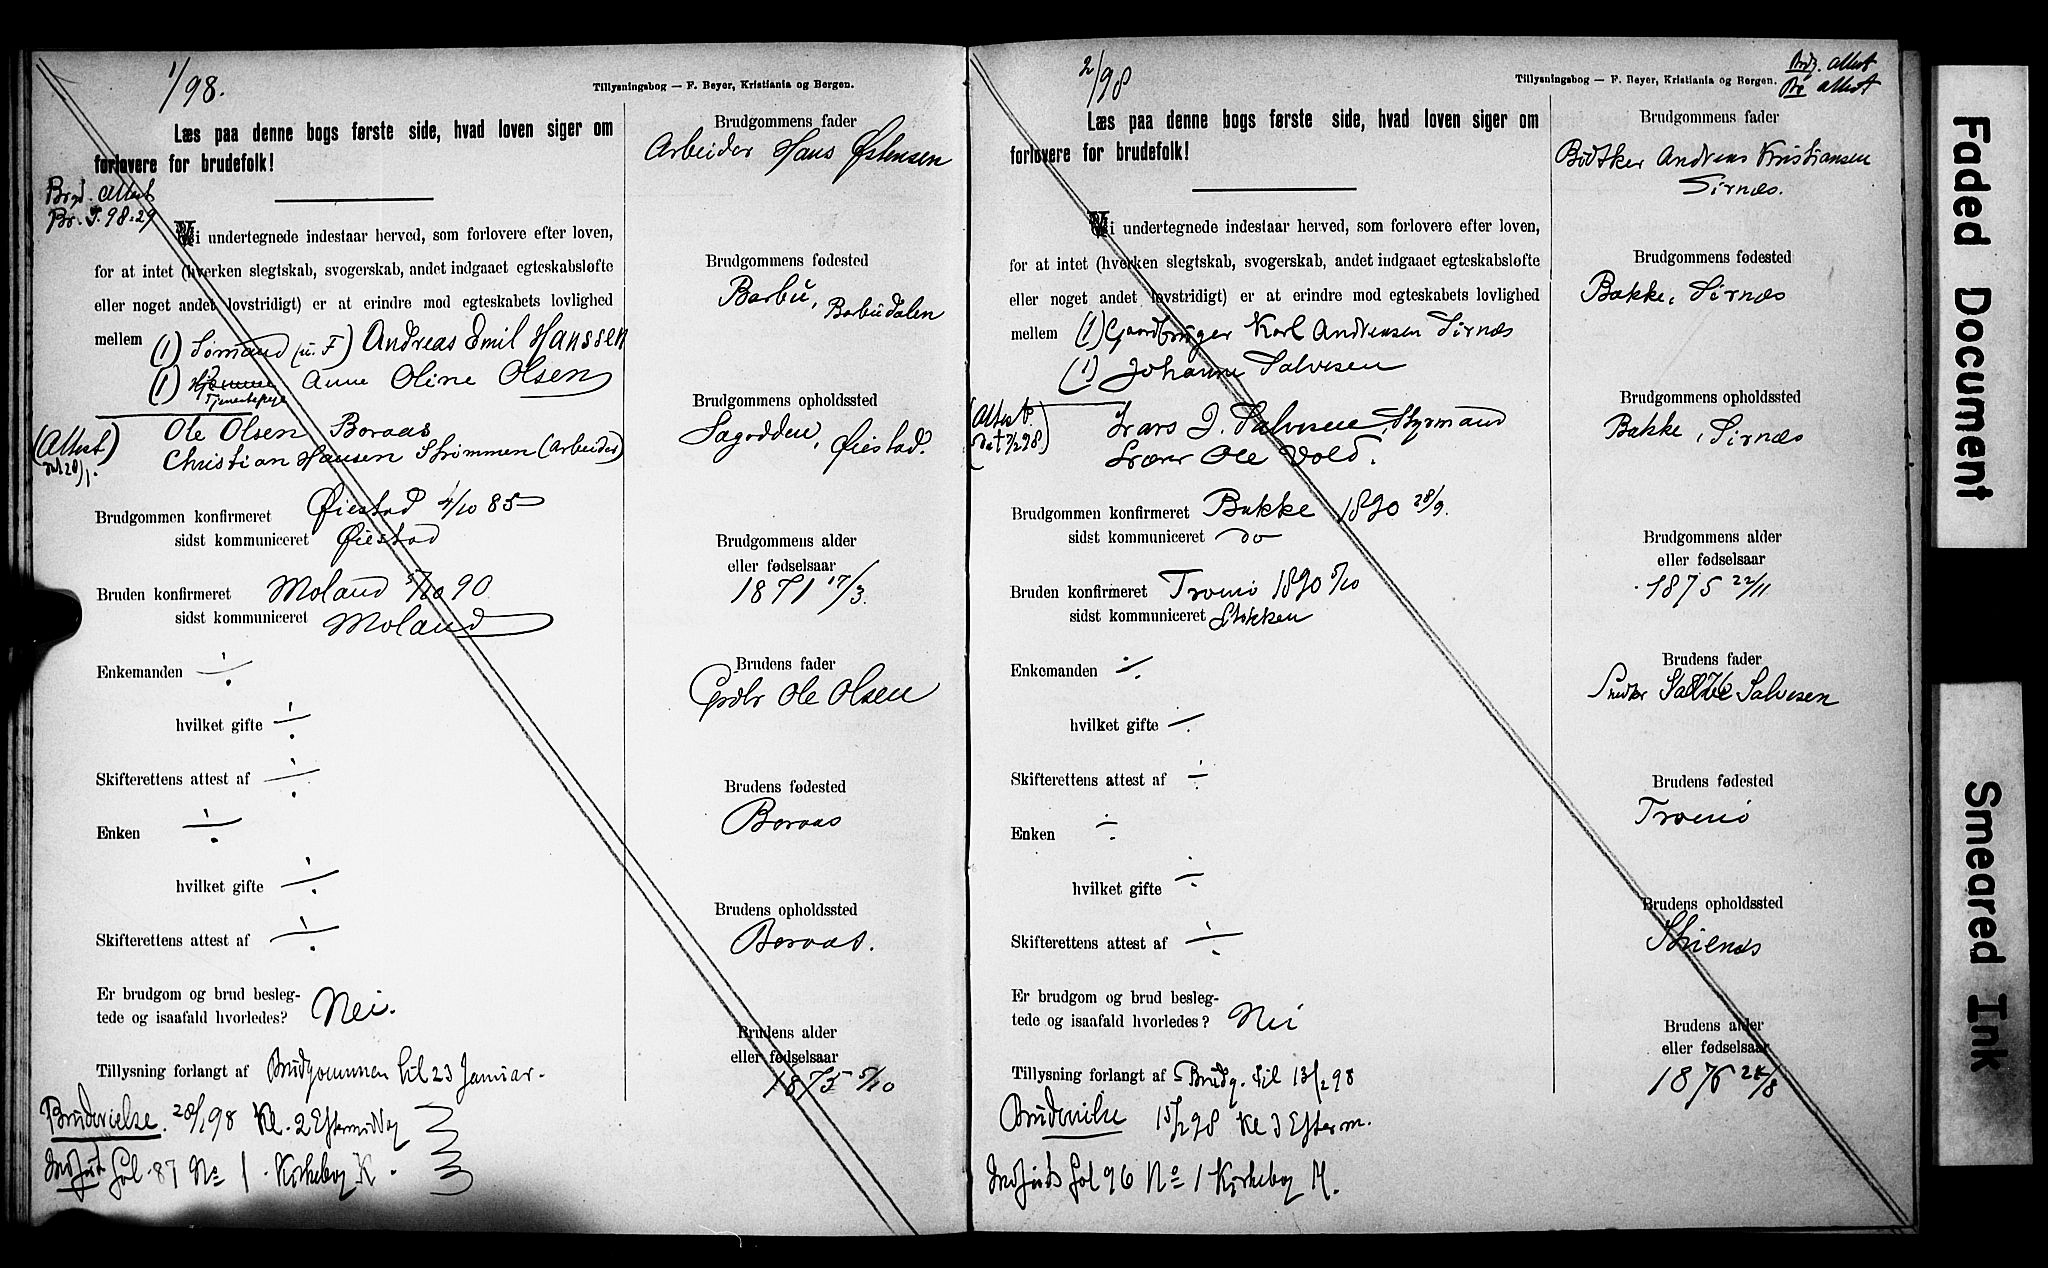 1/98.
Tillysningsbog — F. Beyer, Kristiania og Bergen.
Læs paa denne bogs første side, hvad loven siger om
forlovere for brudefolk!
Brgd. Attest
Br. J. 98.29
Vi undertegnede indestaar herved, som forlovere efter loven,
for at intet (hverken slegtskab, svogerskab, andet indgaaet egteskabsløfte
eller noget andet lovstridigt) er at erindre mod egteskabets lovlighed
mellem (1) Sømand (u. F) Andreas Emil Hanssen
(1) Hjemme Anne Oline Olsen
Tjenestepige
Ole Olsen Boraas
(Attest) Christian Hansen Strømmen (Arbeider)
dat 20/1.
Brudgommen konfirmeret Øiestad 4/10 85
sidst kommuniceret Øiestad
Bruden konfirmeret Moland 5/10 90
sidst kommuniceret Moland
Enkemanden ÷
hvilket gifte ÷
Skifterettens attest af ÷
Enken ÷
hvilket gifte ÷
Skifterettens attest af ÷
Er brudgom og brud besleg-
tede og isaafald hvorledes? Nei.
Tillysning forlangt af Brudgommen til 23 Januar.
Brudevielse. 28/1 98 Kl. 2 Eftermiddag
Indført Fol. 87 No 1. Kirkebog K.
Brudgommens fader
Arbeider Hans Østensen
Brudgommens fødested
Barbu, Barbudalen
Brudgommens opholdssted
Sagodden, Øiestad.
Brudgommens alder
eller fødselsaar
1871 17/3.
Brudens fader
Grdbr Ole Olsen
Brudens fødested
Boraas
Brudens opholdssted
Boraas.
Brudens alder
eller fødselsaar
1875 5/10
2/98
Tillysningsbog — F. Beyer, Kristiania og Bergen.
Brdg. attest
Br attest
Læs paa denne bogs første side, hvad loven siger om
forlovere for brudefolk!
Vi undertegnede indestaar herved, som forlovere efter loven,
for at intet (hverken slegtskab, svogerskab, andet indgaaet egteskabsløfte
eller noget andet lovstridigt) er at erindre mod egteskabets lovlighed
mellem (1) Gaardbruger Karl Andreasen Sirnæs
(1) Johanne Salvesen
(Attest Lars J. Salvesen, Styrmand
Lærer Ole Vold.
Brudgommen konfirmeret Bakke 1890 28/9.
sidst kommuniceret do
Bruden konfirmeret Tromø 1890 5/10
sidst kommuniceret Stokken
Enkemanden ÷
hvilket gifte ÷
Skifterettens attest af ÷
Enken ÷
hvilket gifte ÷
Skifterettens attest af ÷
Er brudgom og brud besleg-
tede og isaafald hvorledes? Nei
Tillysning forlangt af Brudg. til 13/2 98
Brudevielse 15/2 98 Kl 3 Efterm.
Indført Fol 96 No 1 Kirkebog M.
Brudgommens fader
Bødker Andreas Kristiansen
Sirnæs.
Brudgommens fødested
Bakke, Sirnæs
Brudgommens opholdssted
Bakke, Sirnæs
Brudgommens alder
eller fødselsaar
1875 22/11
Brudens fader
Snedker Salve Salvesen
Brudens fødested
Tromø
Brudens opholdssted
Skienæs
Brudens alder
eller fødselsaar
1876 24/8
Faded Document
Smeared Ink